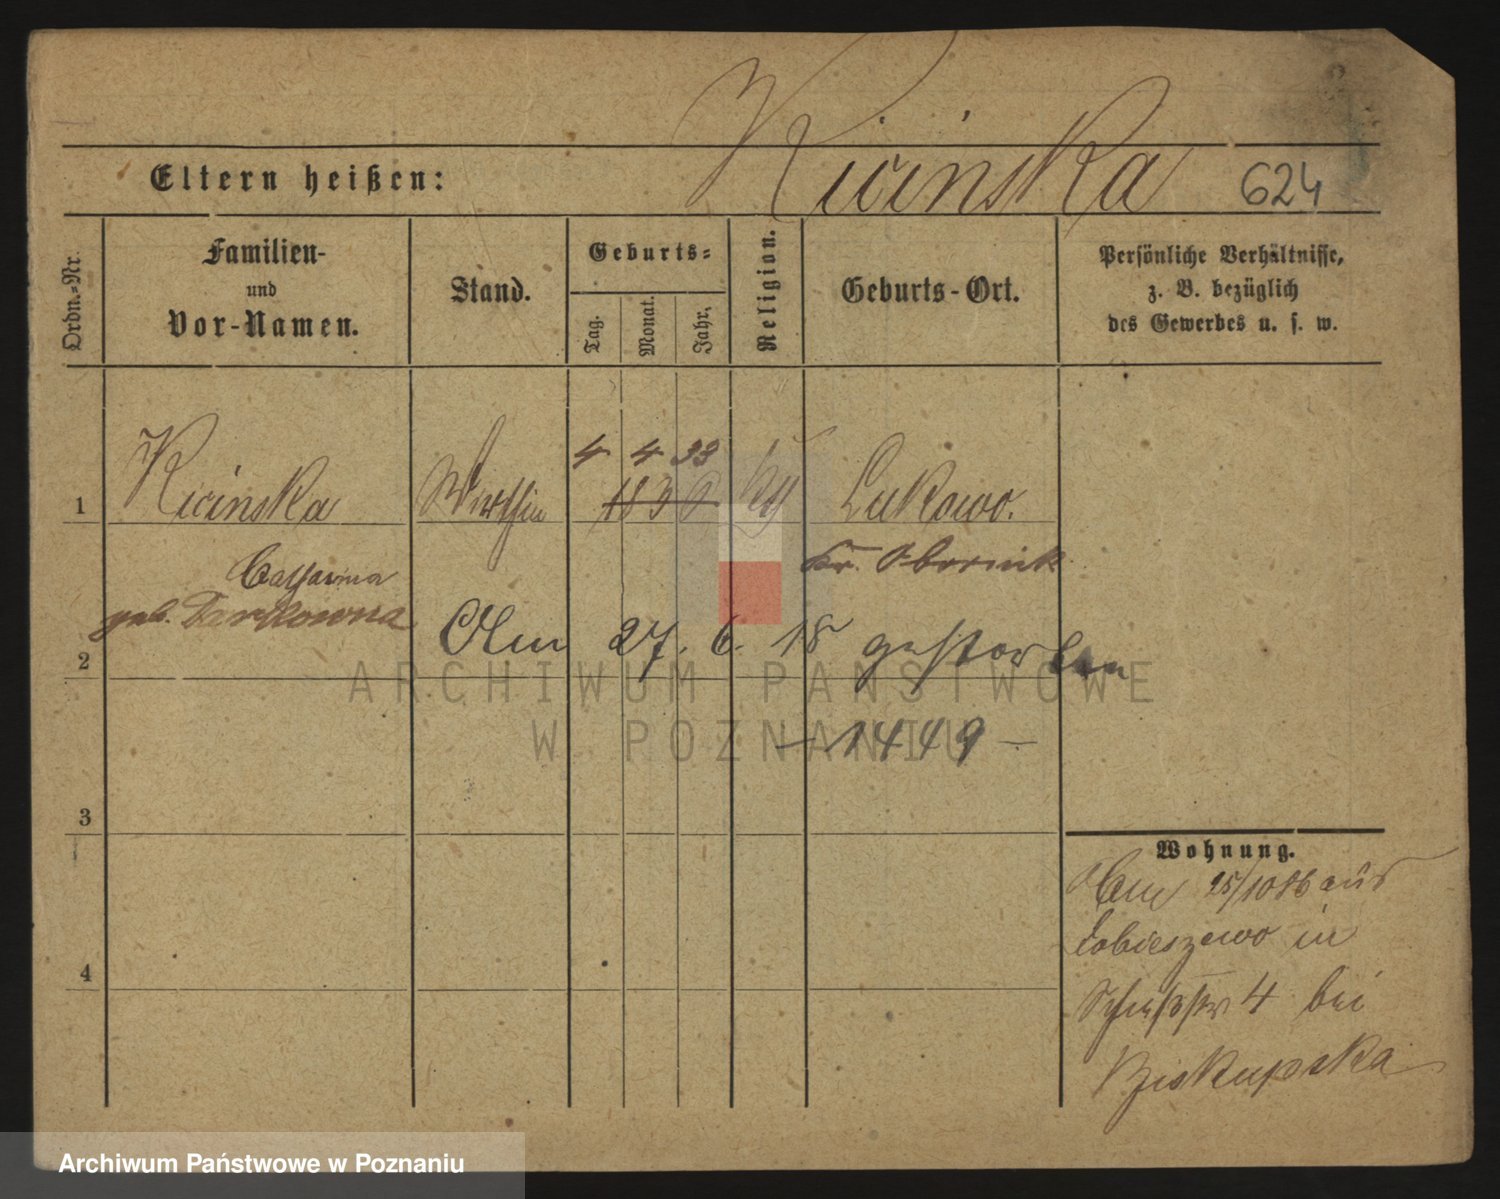 Kicinska
Eltern heißen:
624
Ordn.-Nr.
Familien-
und
Vor-Namen.
Stand.
Geburts-
Tag.
Monat.
Jahr.
Religion.
Geburts-Ort.
Persönliche Verhältnisse,
z. B. bezüglich
des Gewerbes u. s. w.
4 4 33
1 Kicinska Wirthin 1830 Lukowo.
Catharina Kr. Obornik
geb.
Am 27. 6. 18 gestorben
2
ARCHIWUM PAŃSTWOWE
W POZNANIU
— 1449 —
3
Wohnung.
Am 25/10 86 aus
Sobieszewo in
4
Schießstr 4 bei
Biskupska
Archiwum Państwowe w Poznaniu